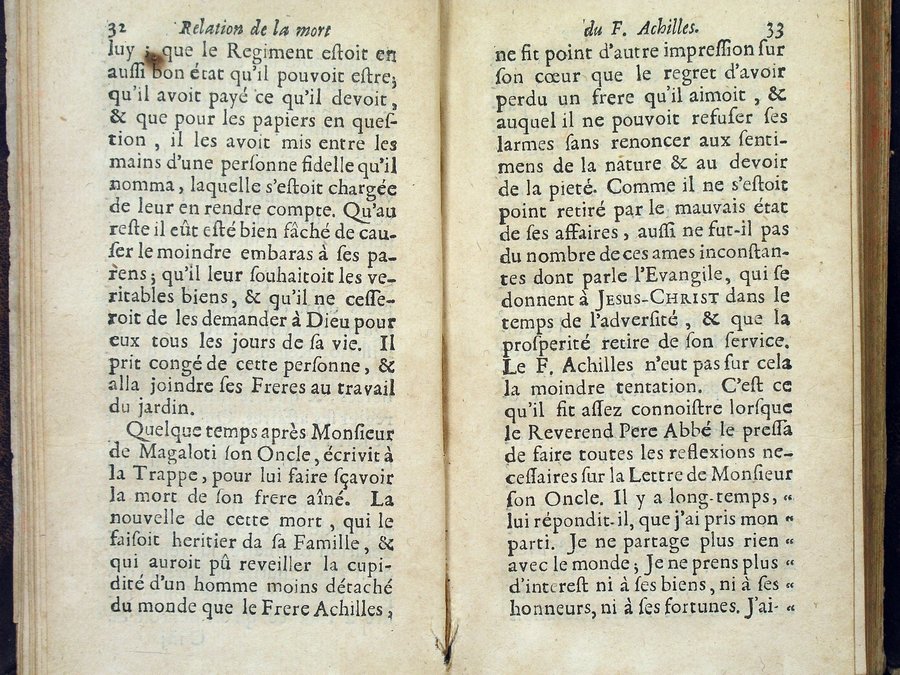 32 Relation de la mort
luy ; que le Regiment eſtoit en
auſſi bon état qu'il pouvoit eſtre;
qu'il avoit payé ce qu'il devoit,
& que pour les papiers en queſ-
tion, il les avoit mis entre les
mains d'une perſonne fidelle qu'il
nomma, laquelle s'eſtoit chargée
de leur en rendre compte. Qu'au
reſte il eût eſté bien fâché de cau-
ſer le moindre embaras à ſes pa-
rens; qu'il leur ſouhaitoit les ve-
ritables biens, & qu'il ne ceſſe-
roit de les demander à Dieu pour
eux tous les jours de ſa vie. Il
prit congé de cette perſonne, &
alla joindre ſes Freres au travail
du jardin.
Quelque temps après Monſieur
de Magaloti ſon Oncle, écrivit à
la Trappe, pour lui faire ſçavoir
la mort de ſon frere aîné. La
nouvelle de cette mort, qui le
faiſoit heritier da ſa Famille, &
qui auroit pû reveiller la cupi-
dité d'un homme moins détaché
du monde que le Frere Achilles,
du F. Achilles. 33
ne fit point d'autre impreſſion ſur
ſon cœur que le regret d'avoir
perdu un frere qu'il aimoit, &
auquel il ne pouvoit refuſer ſes
larmes ſans renoncer aux ſenti-
mens de la nature & au devoir
de la pieté. Comme il ne s'eſtoit
point retiré par le mauvais état
de ſes affaires, auſſi ne fut-il pas
du nombre de ces ames inconſtan-
tes dont parle l'Evangile, qui ſe
donnent à JESUS-CHRIST dans le
temps de l'adverſité, & que la
proſperité retire de ſon ſervice.
Le F. Achilles n'eut pas ſur cela
la moindre tentation. C'eſt ce
qu'il fit aſſez connoiſtre lorſque
le Reverend Pere Abbé le preſſa
de faire toutes les reflexions ne-
ceſſaires ſur la Lettre de Monſieur
ſon Oncle. Il y a long-temps, “
lui répondit-il, que j'ai pris mon “
parti. Je ne partage plus rien “
avec le monde; Je ne prens plus “
d'intereſt ni à ſes biens, ni à ſes “
honneurs, ni à ſes fortunes. J'ai- “